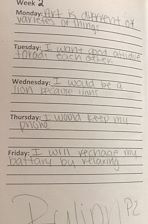 Week 2
Monday: Art is different of
varieties of things
Tuesday: I want good attitude
toradi each other
Wednesday: I would be a
lion because
Thursday: I would keep my
phone
Friday: I will recharge my
battary by relaxing
P2